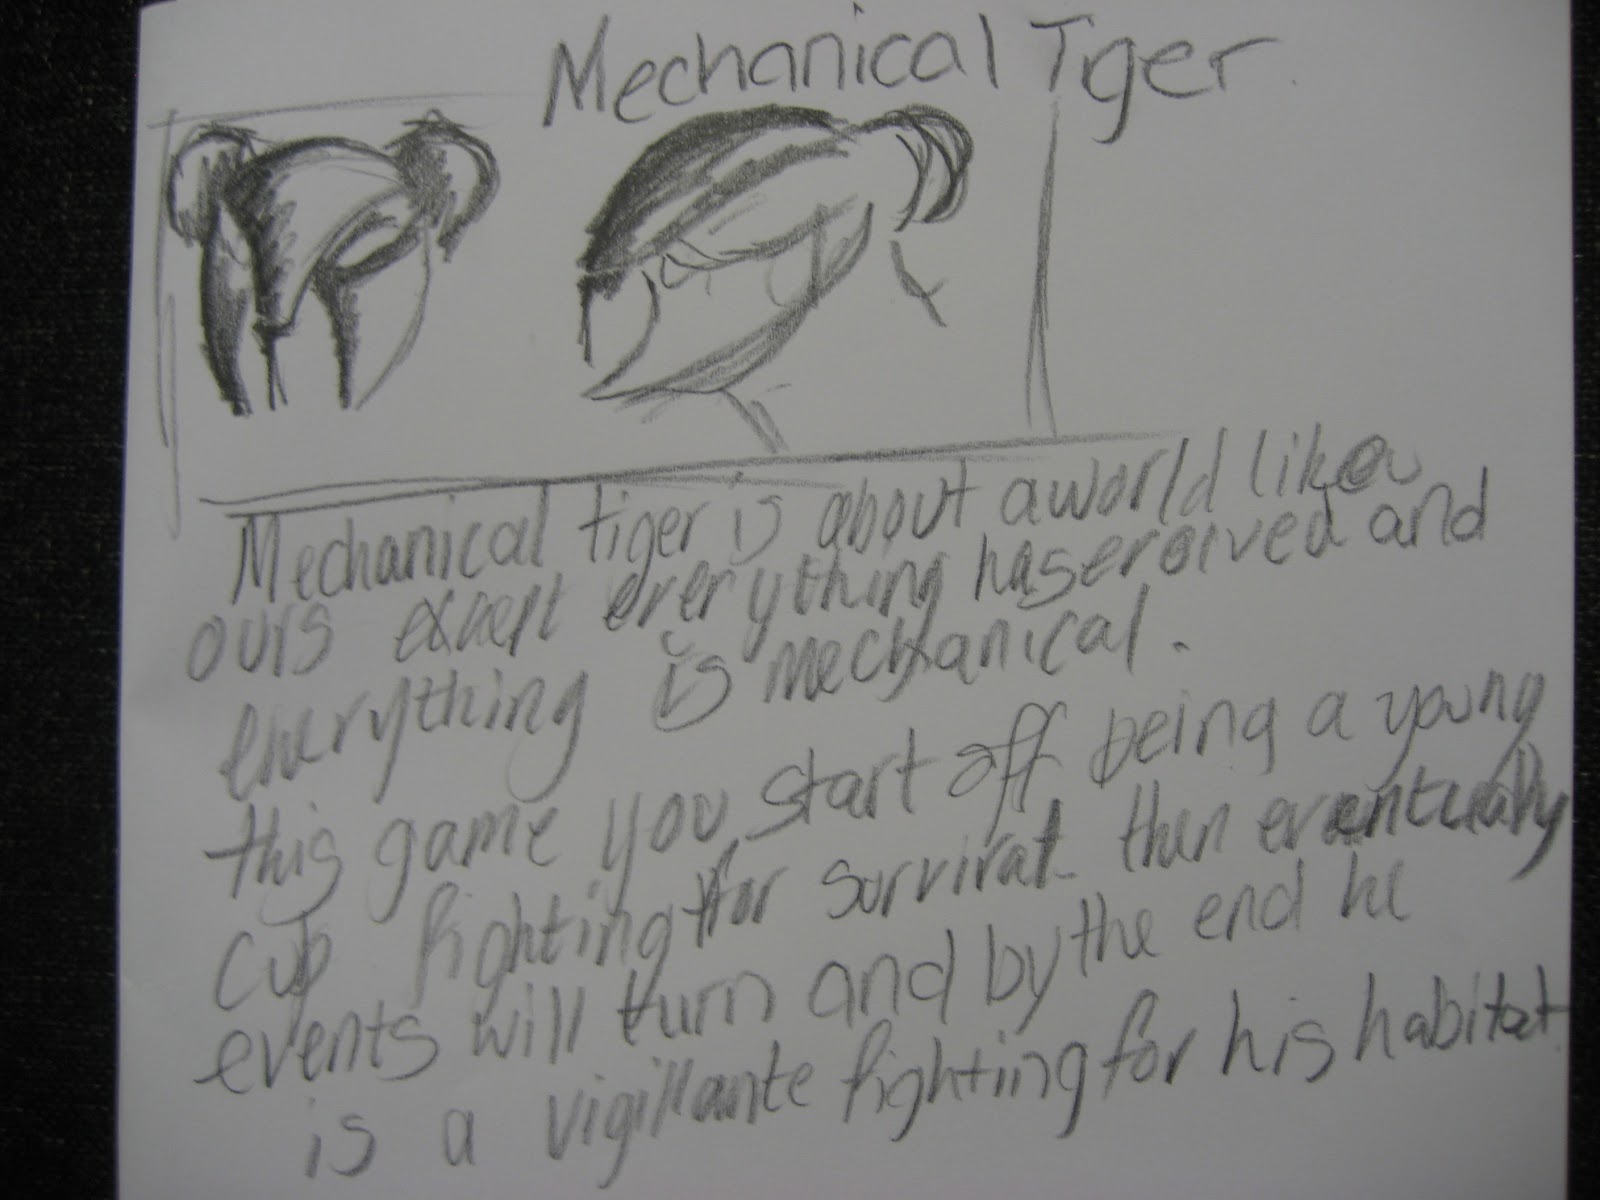 Mechanical Tiger.
Mechanical tiger is about a world like
ours except everything has evolved and
everything is mechanical.
this game you start off being a young
cub fighting for survival. then eventually
events will turn and by the end he
is a vigillante fighting for his habitat.